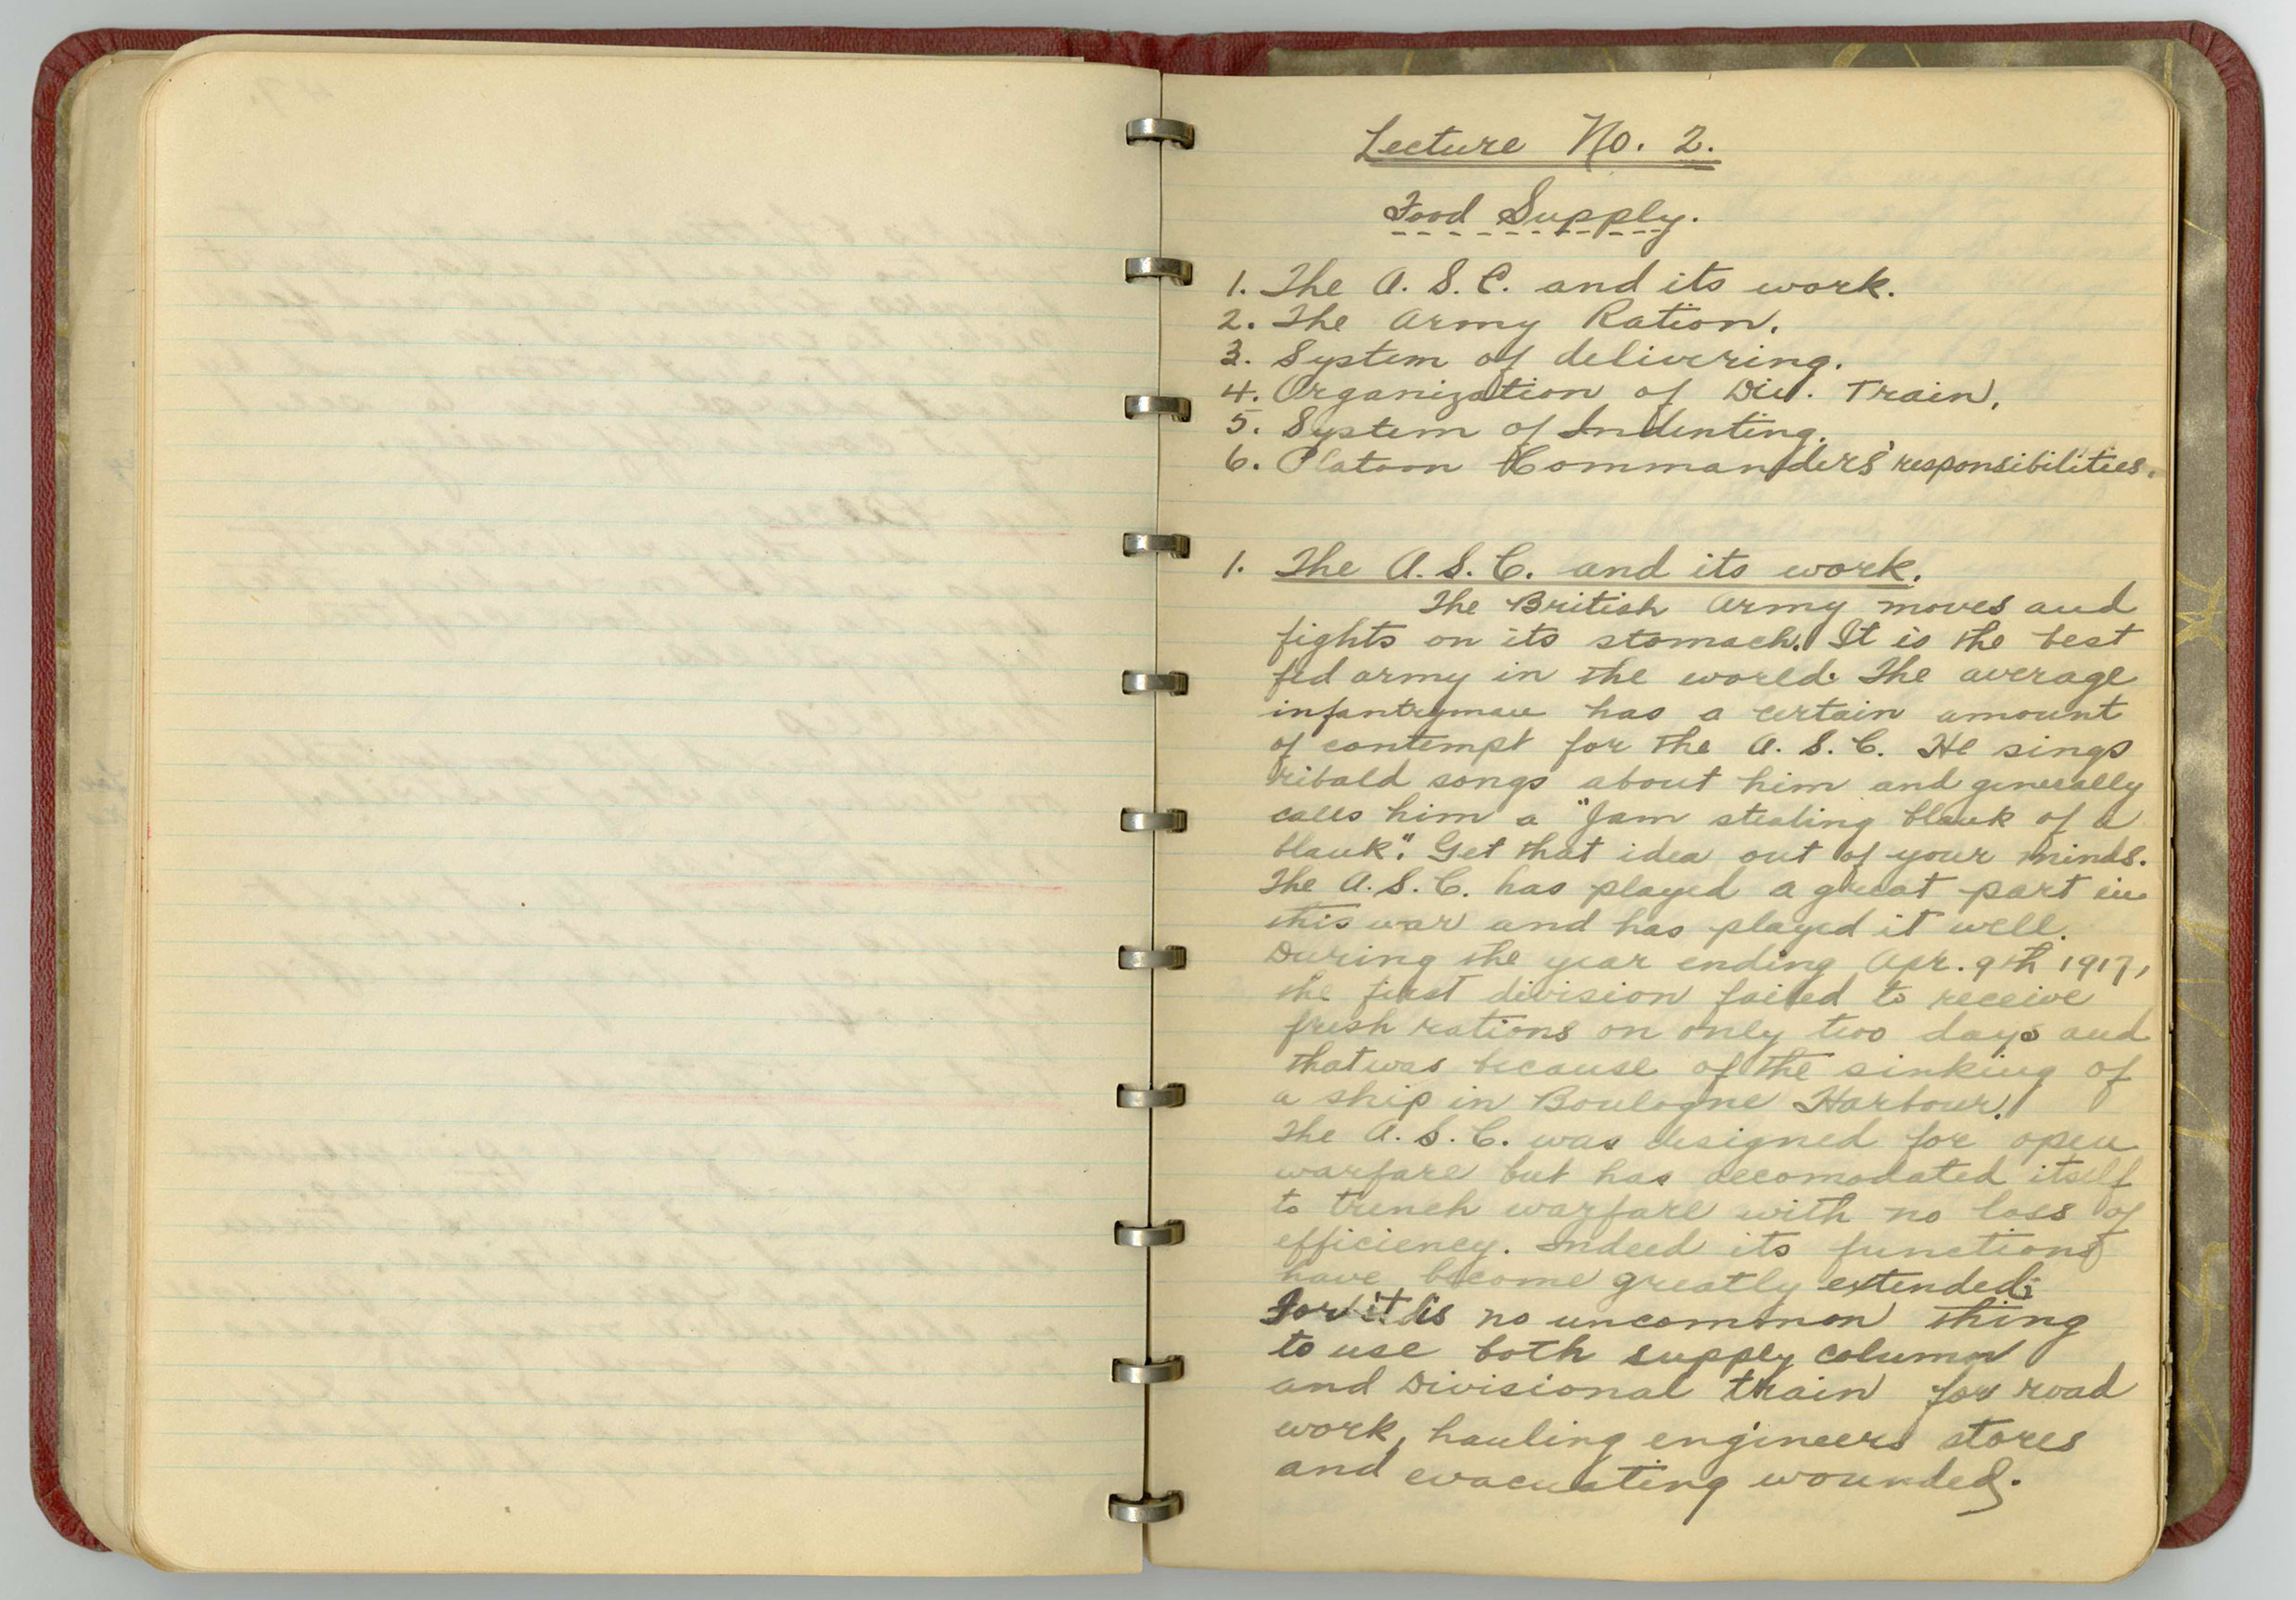 Lecture No. 2.
Food Supply.
1. The A. S. C. and its work.
2. The Army Ration.
3. System of delivering.
4. Organization of Div. Train.
5. System of Indenting.
6. Platoon Commanders' responsibilities.
1. The A. S. C. and its work.
The British Army moves and
fights on its stomach. It is the best
fed army in the world. The average
infantryman has a certain amount
of contempt for the A. S. C. He sings
ribald songs about him and generally
calls him a "Jam stealing blank of a
blank". Get that idea out of your minds.
The A. S. C. has played a great part in
this war and has played it well.
During the year ending Apr. 9th 1917,
the first division failed to receive
fresh rations on only two days and
that was because of the sinking of
a ship in Boulogne Harbour.
The A. S. C. was designed for open
warfare but has accomodated itself
to trench warfare with no loss of
efficiency. Indeed its functions
have become greatly extended;
for it is no uncommon thing
to use both supply column
and Divisional train for road
work, hauling engineers stores
and evacuating wounded.